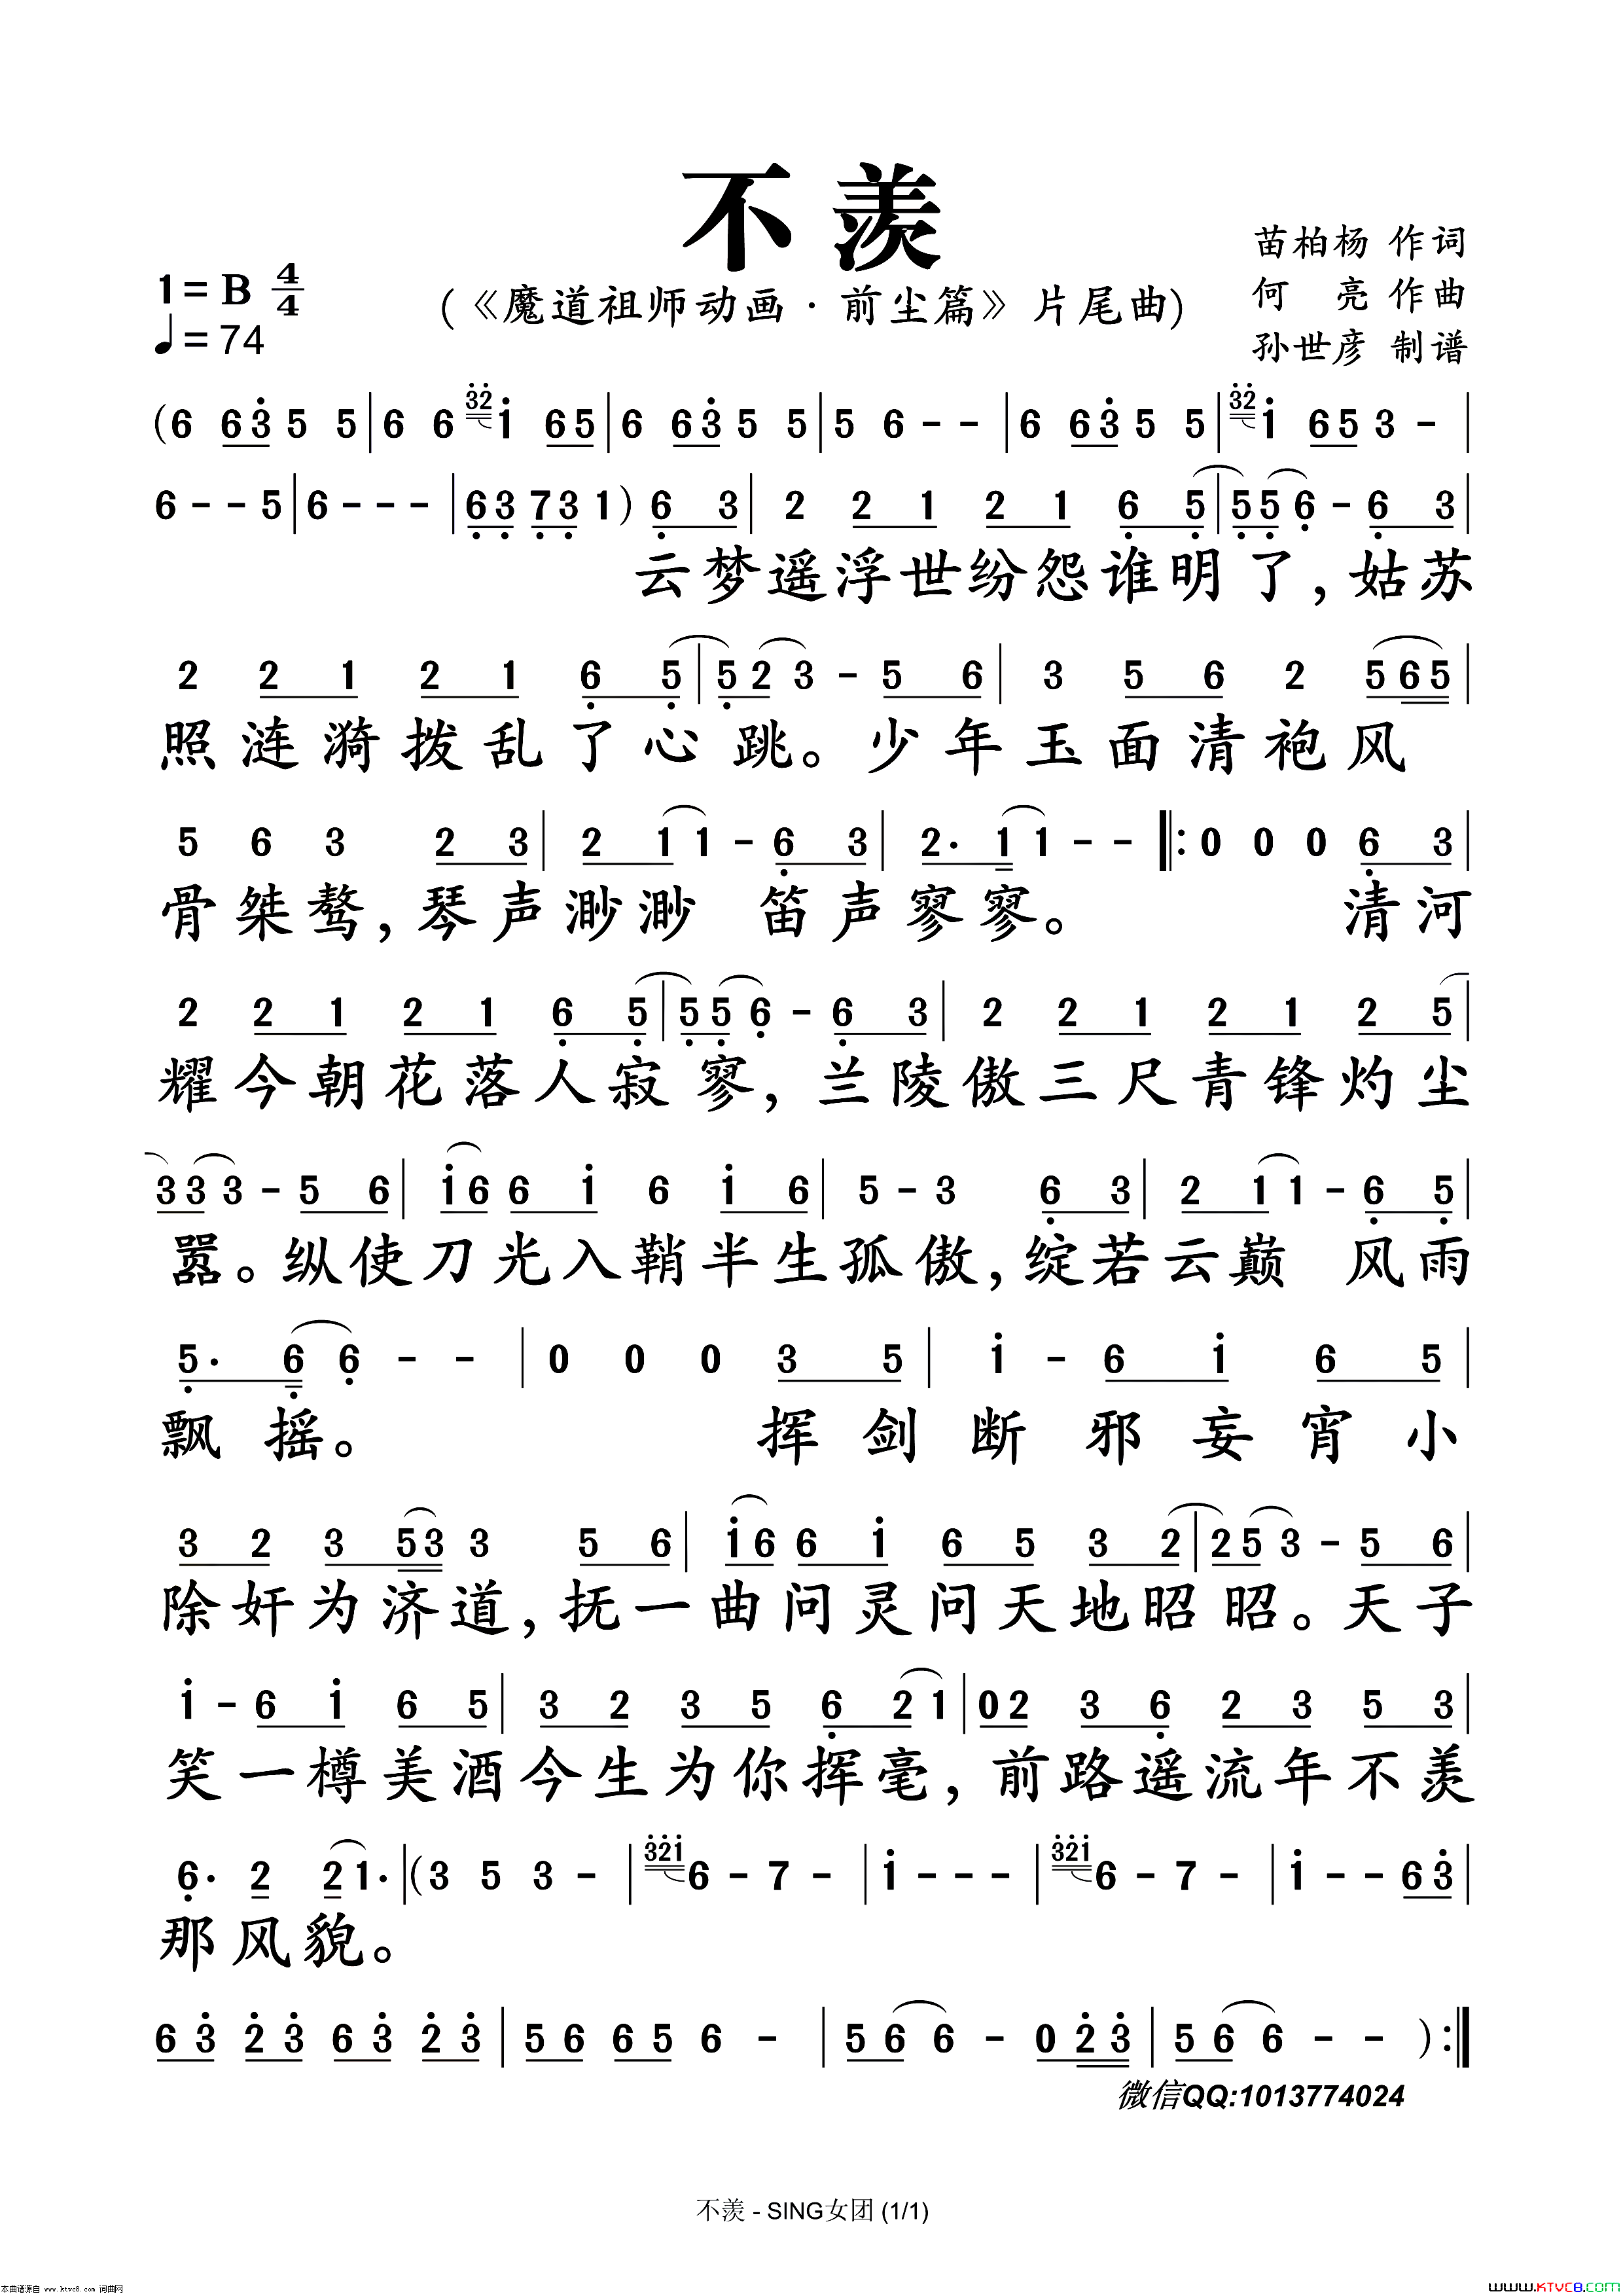 不羡
苗柏杨 作词
1=B 4/4
(《魔道祖师动画·前尘篇》片尾曲)
何 亮 作曲
♩=74
孙世彦 制谱
(6 63̇ 5 5|6 6 3̇2̇1̇ 65|6 63̇ 5 5|5 6 - -|6 63̇ 5 5|3̇2̇1̇ 65 3 -|
6 - - 5|6 - - -|6̣3̣ 7̣3̣ 1) 6̣ 3|2 2 1 2 1 6̣ 5̣|5̣5̣ 6̣ - 6̣ 3|
云梦遥浮世纷怨谁明了,姑苏
2 2 1 2 1 6̣ 5̣|5̣2 3 - 5 6|3 5 6 2 565|
照涟漪拨乱了心跳。少年玉面清袍风
5 6 3 2 3|2 1 1 - 6̣ 3|2. 1 1 - -|:0 0 0 6̣ 3|
骨桀骜,琴声渺渺 笛声寥寥。 清河
2 2 1 2 1 6̣ 5̣|5̣5̣ 6̣ - 6̣ 3|2 2 1 2 1 2 5|
耀今朝花落人寂寥,兰陵傲三尺青锋灼尘
33 3 - 5 6|1̇6 6 1̇ 6 1̇ 6|5 - 3 6̣ 3|2 1 1 - 6̣ 5̣|
嚣。纵使刀光入鞘半生孤傲,绽若云巅 风雨
5̣. 6̣ 6̣ - -|0 0 0 3 5|1̇ - 6 1̇ 6 5|
飘摇。 挥剑断邪妄宵小
3 2 3 53 3 5 6|1̇6 6 1̇ 6 5 3 2|25 3 - 5 6|
除奸为济道,抚一曲问灵问天地昭昭。天子
1̇ - 6 1̇ 6 5|3 2 3 5 6̣ 2 1|02 3 6̣ 2 3 5 3|
笑一樽美酒今生为你挥毫,前路遥流年不羡
6̣. 2 2 1.|(3 5 3 -|3̇2̇1̇6 - 7 -|1̇ - - -|3̇2̇1̇6 - 7 -|1̇ - - 63̇|
那风貌。
63̇ 2̇3̇ 63̇ 2̇3̇|56 65 6 -|56 6 - 02̇3̇|56 6 - -):|
微信QQ:1013774024
不羡 - SING女团 (1/1)
本曲谱源自 www.ktvc8.com 词曲网
WWW.KTVC8.COM